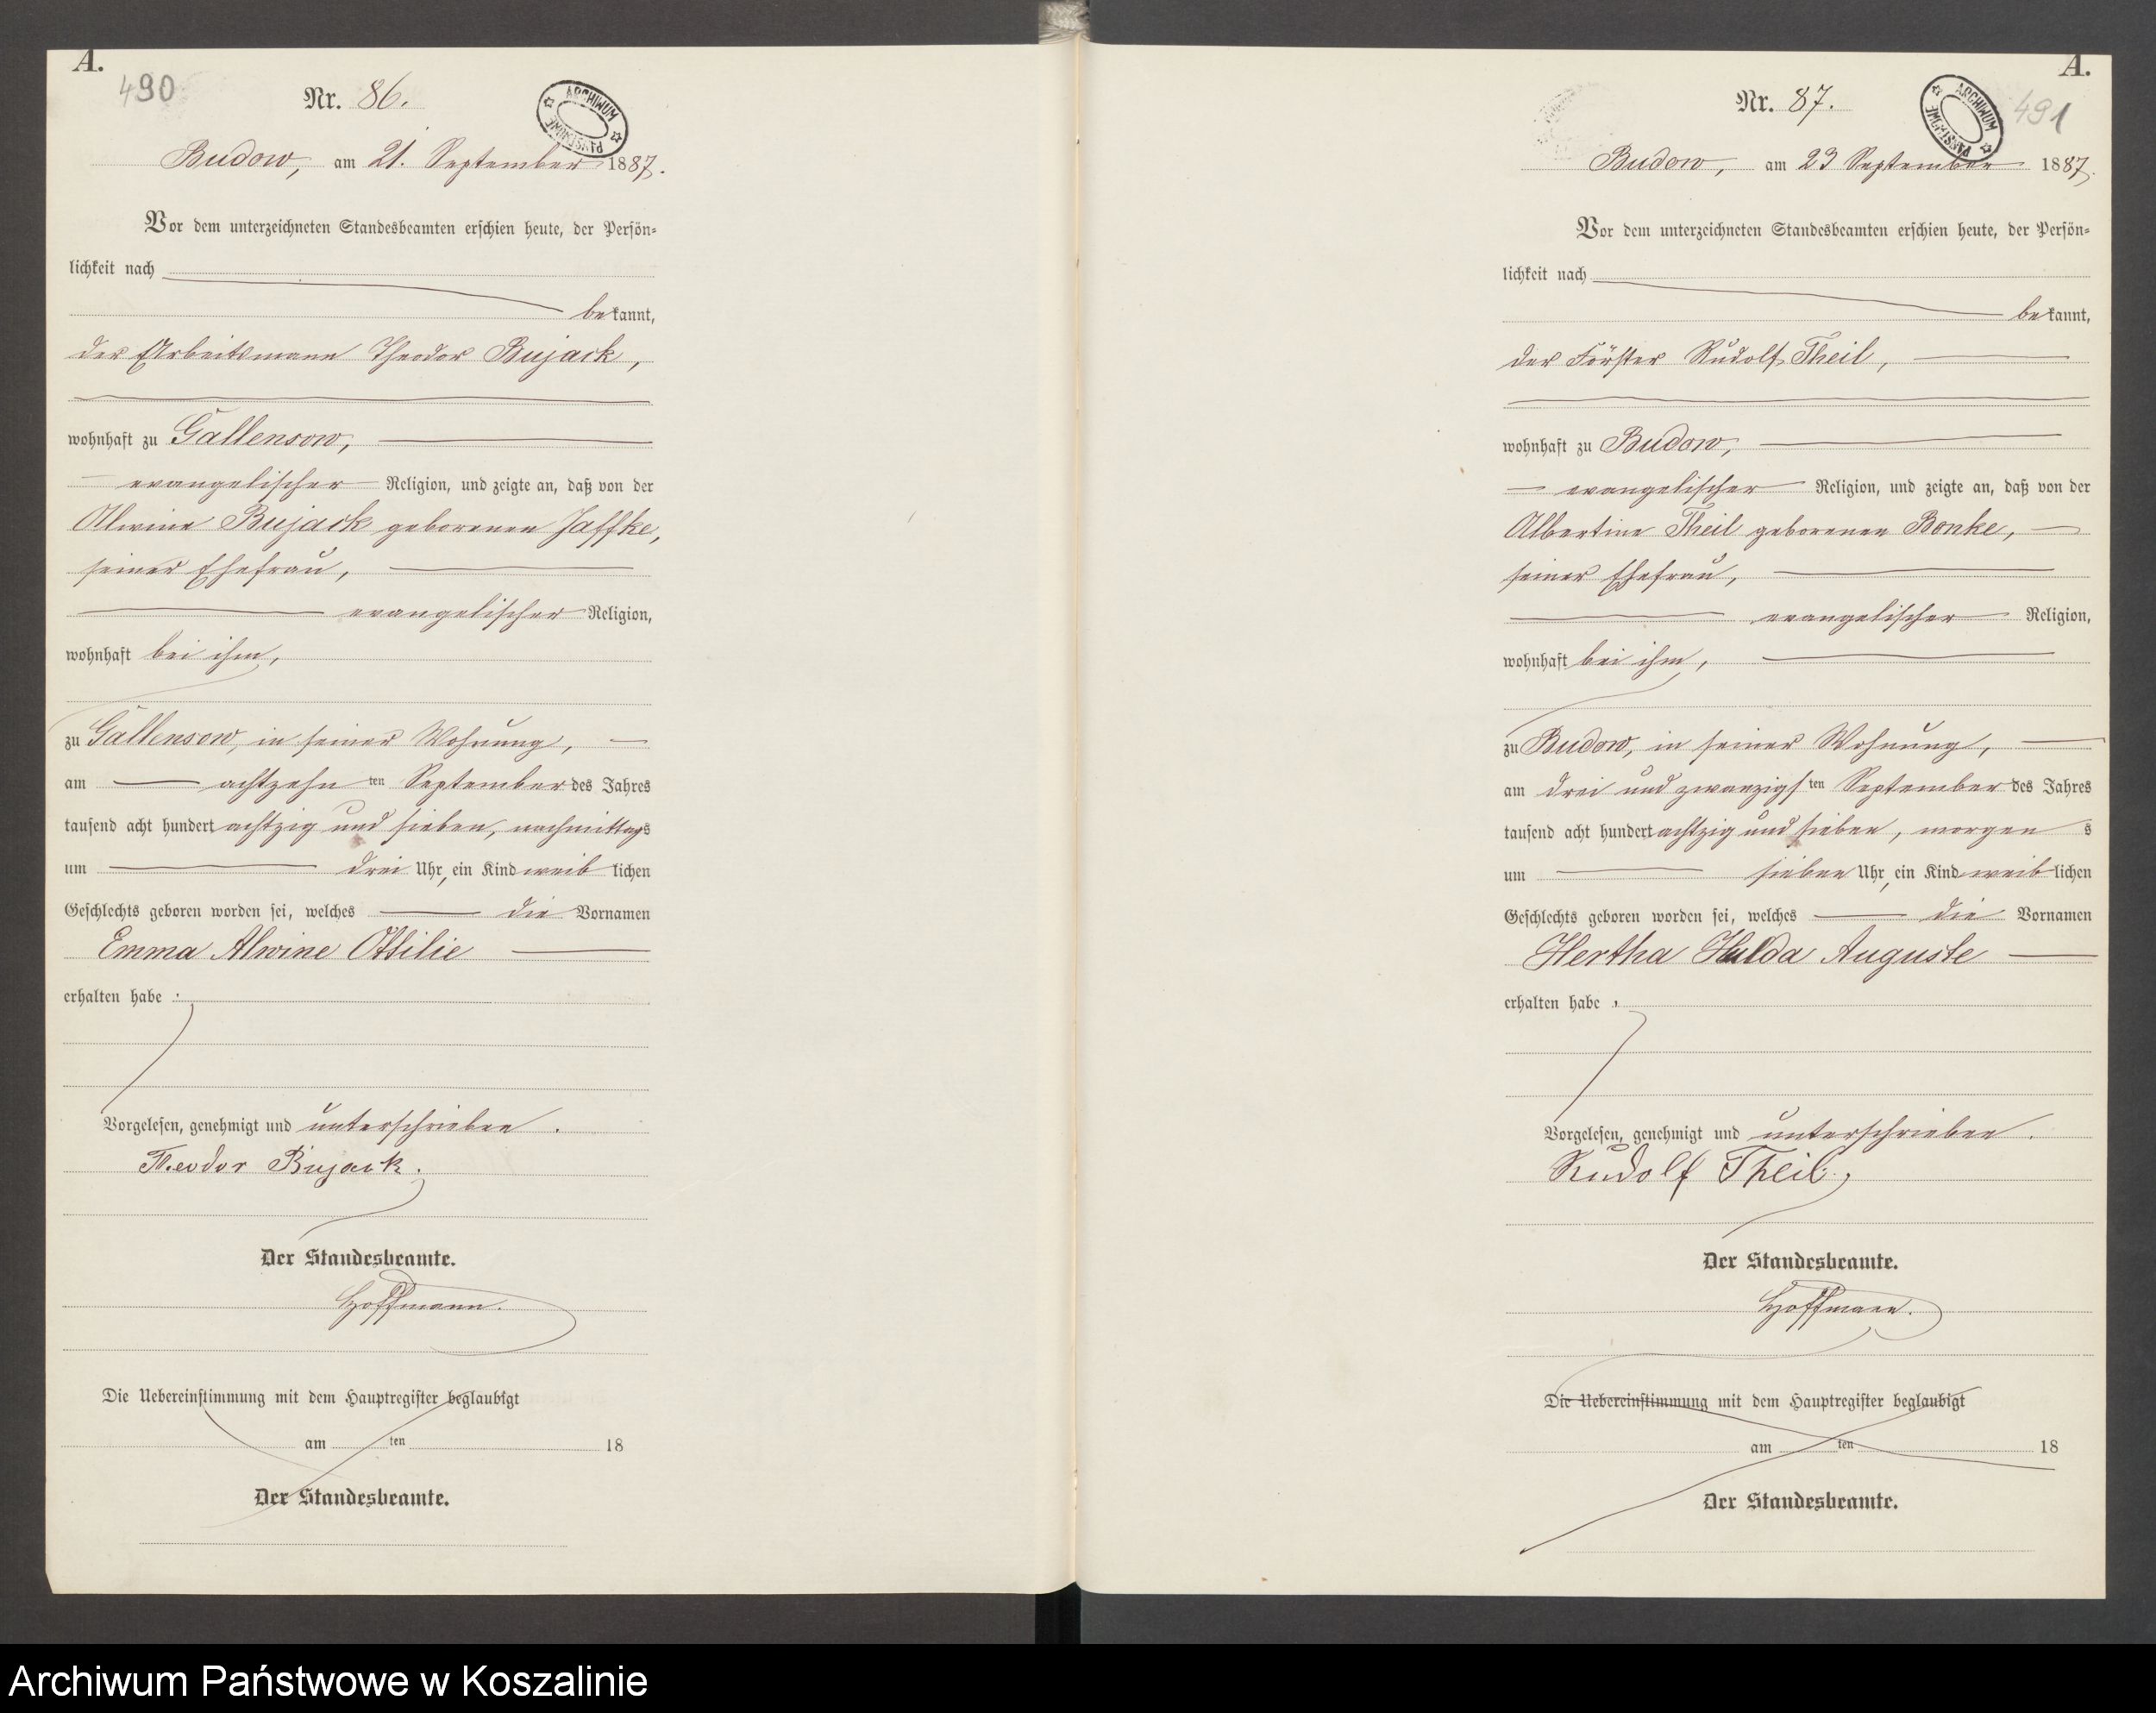 A.
490
Nr. 86.
ARCHIWUM PAŃSTWOWE
Budow, am 21. September 1887.
Vor dem unterzeichneten Standesbeamten erschien heute, der Persön-
lichkeit nach
bekannt,
der Arbeitsmann Theodor Bujack,
wohnhaft zu Gallensow,
evangelischer Religion, und zeigte an, daß von der
Alwine Bujack geborenen Jaffke,
seiner Ehefrau,
evangelischer Religion,
wohnhaft bei ihm,
zu Gallensow, in seiner Wohnung,
am achtzehn ten September des Jahres
tausend acht hundert achtzig und sieben, nachmittags
um drei Uhr, ein Kind weiblichen
Geschlechts geboren worden sei, welches die Vornamen
Emma Alwine Ottilie
erhalten habe.
Vorgelesen, genehmigt und unterschrieben.
Theodor Bujack.
Der Standesbeamte.
Hoffmann.
Die Uebereinstimmung mit dem Hauptregister beglaubigt
am ten 18
Der Standesbeamte.
A.
491
Nr. 87.
ARCHIWUM PAŃSTWOWE
Budow, am 23 September 1887.
Vor dem unterzeichneten Standesbeamten erschien heute, der Persön-
lichkeit nach
bekannt,
der Förster Rudolf Theil,
wohnhaft zu Budow,
evangelischer Religion, und zeigte an, daß von der
Albertine Theil geborenen Bonke,
seiner Ehefrau,
evangelischer Religion,
wohnhaft bei ihm,
zu Budow, in seiner Wohnung,
am drei und zwanzigsten September des Jahres
tausend acht hundert achtzig und sieben, morgens
um sieben Uhr, ein Kind weiblichen
Geschlechts geboren worden sei, welches die Vornamen
Hertha Hulda Auguste
erhalten habe.
Vorgelesen, genehmigt und unterschrieben.
Rudolf Theil,
Der Standesbeamte.
Hoffmann.
Die Uebereinstimmung mit dem Hauptregister beglaubigt
am ten 18
Der Standesbeamte.
Archiwum Państwowe w Koszalinie